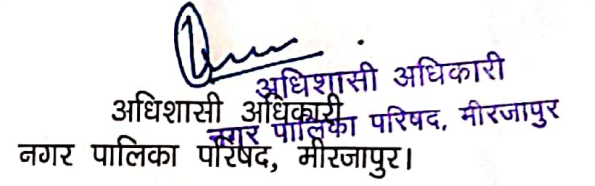 अधिशासी अधिकारी
नगर पालिका परिषद, मीरजापुर
अधिशासी अधिकारी
नगर पालिका परिषद, मीरजापुर।